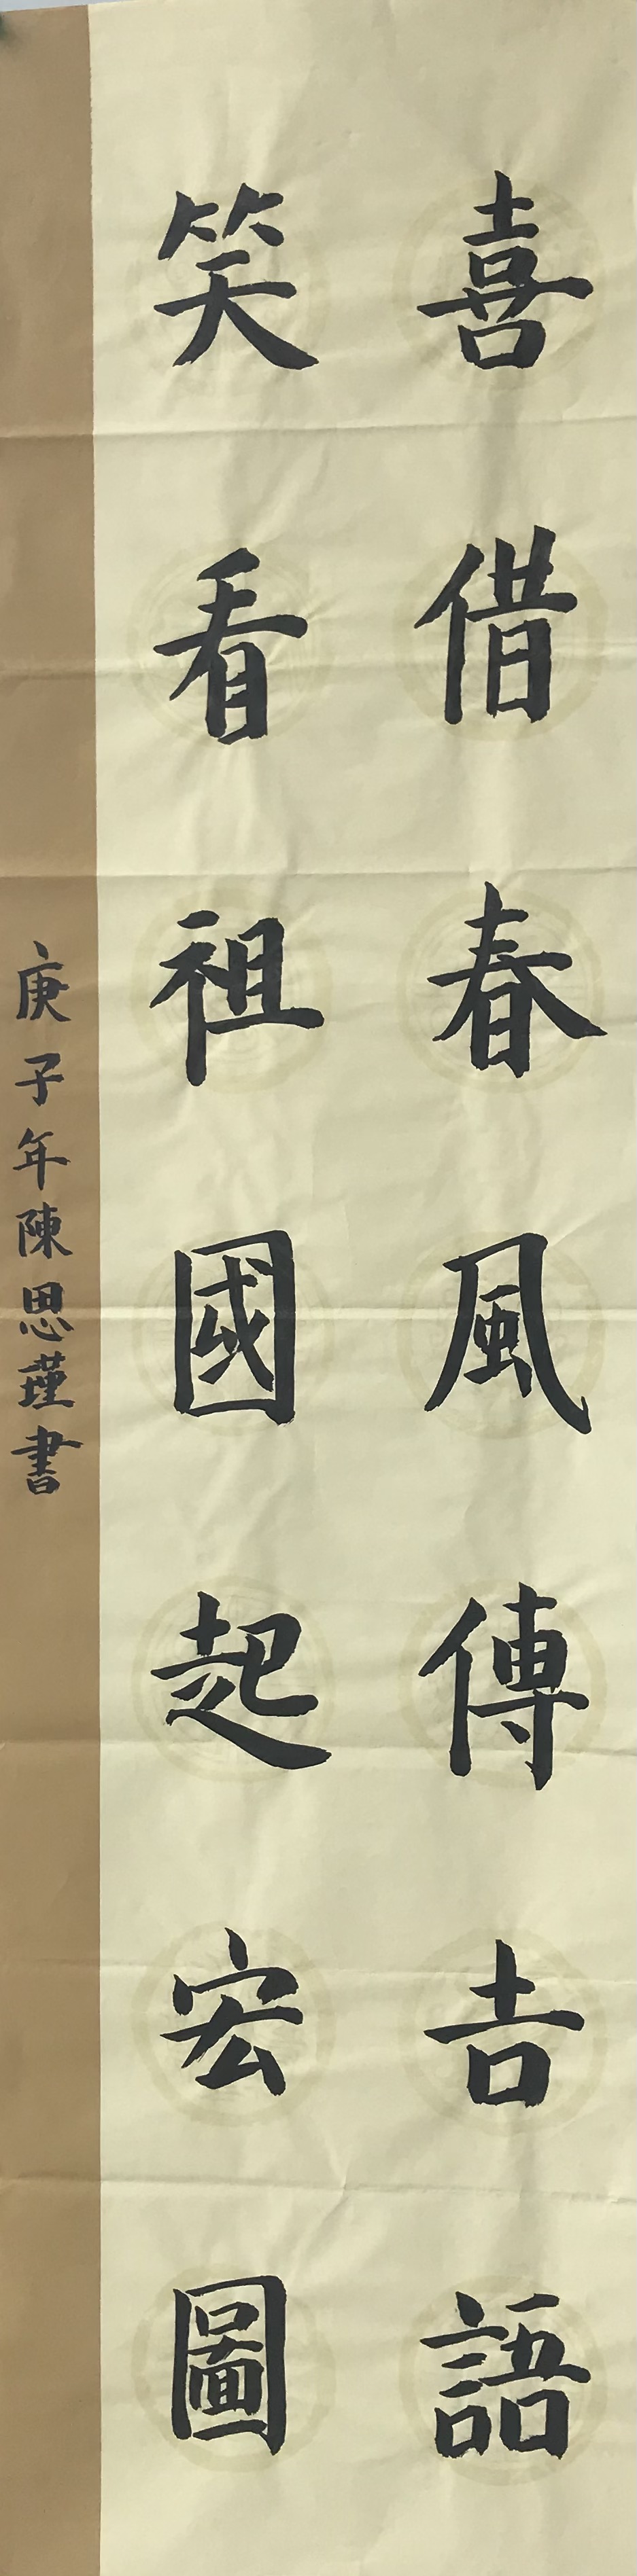 喜借春風傳吉語
笑看祖國起宏圖
庚子年陳思瑾書